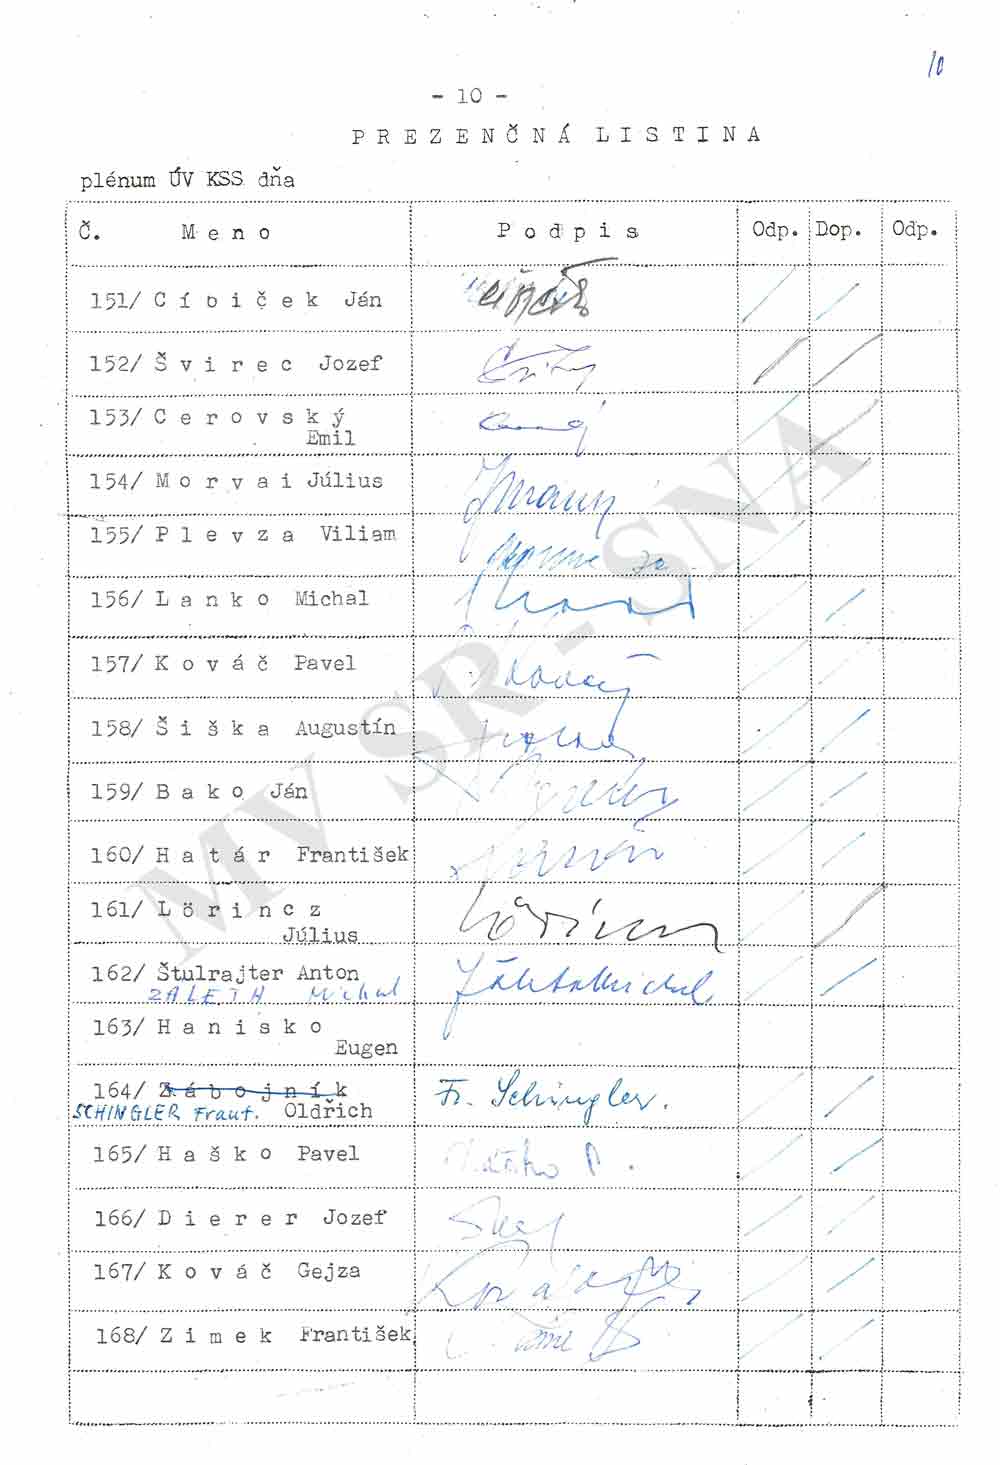 10
- 10 -
PREZENČNÁ LISTINA
plénum ÚV KSS dňa
Č. Meno Podpis Odp. Dop. Odp.
151/ Cíbiček Ján
152/ Švirec Jozef
153/ Cerovský
Emil
154/ Morvai Július
155/ Plevza Viliam
156/ Lanko Michal
157/ Kováč Pavel
158/ Šiška Augustín
159/ Bako Ján
160/ Határ František
161/ Lörincz
Július
162/ Štulrajter Anton
ZALETA Michal
163/ Hanisko
Eugen
164/ Zábojník Fr. Schingler.
SCHINGLER Frant. Oldřich
165/ Haško Pavel
166/ Dierer Jozef
167/ Kováč Gejza
168/ Zimek František
MV SR - SNA